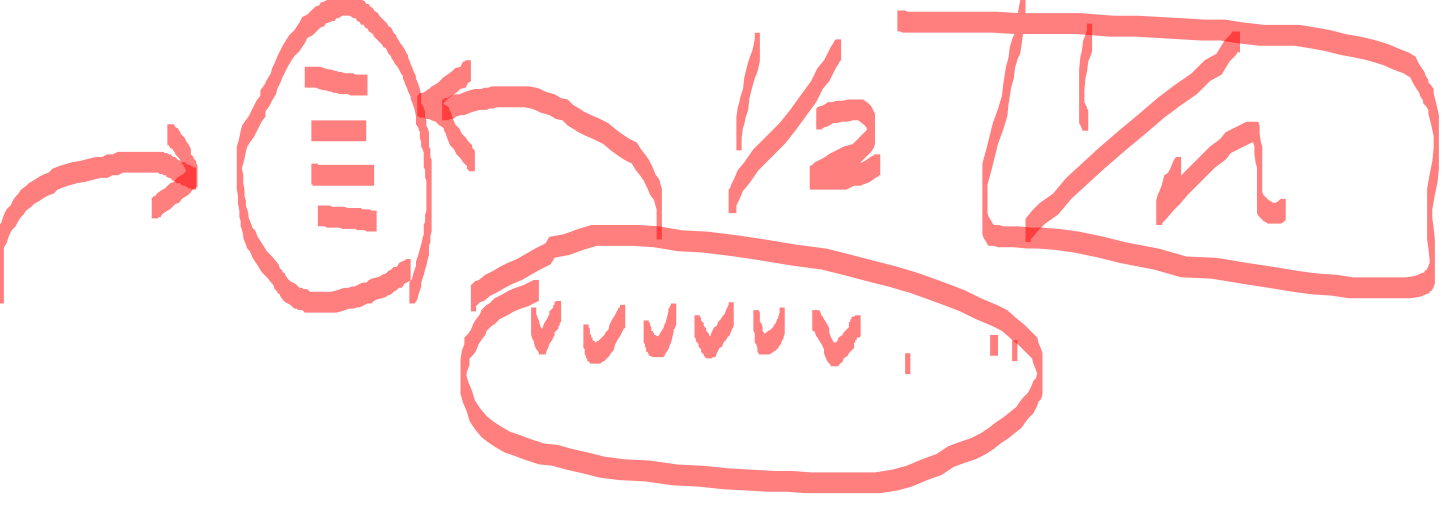 1/2
1/n
v v v v v v